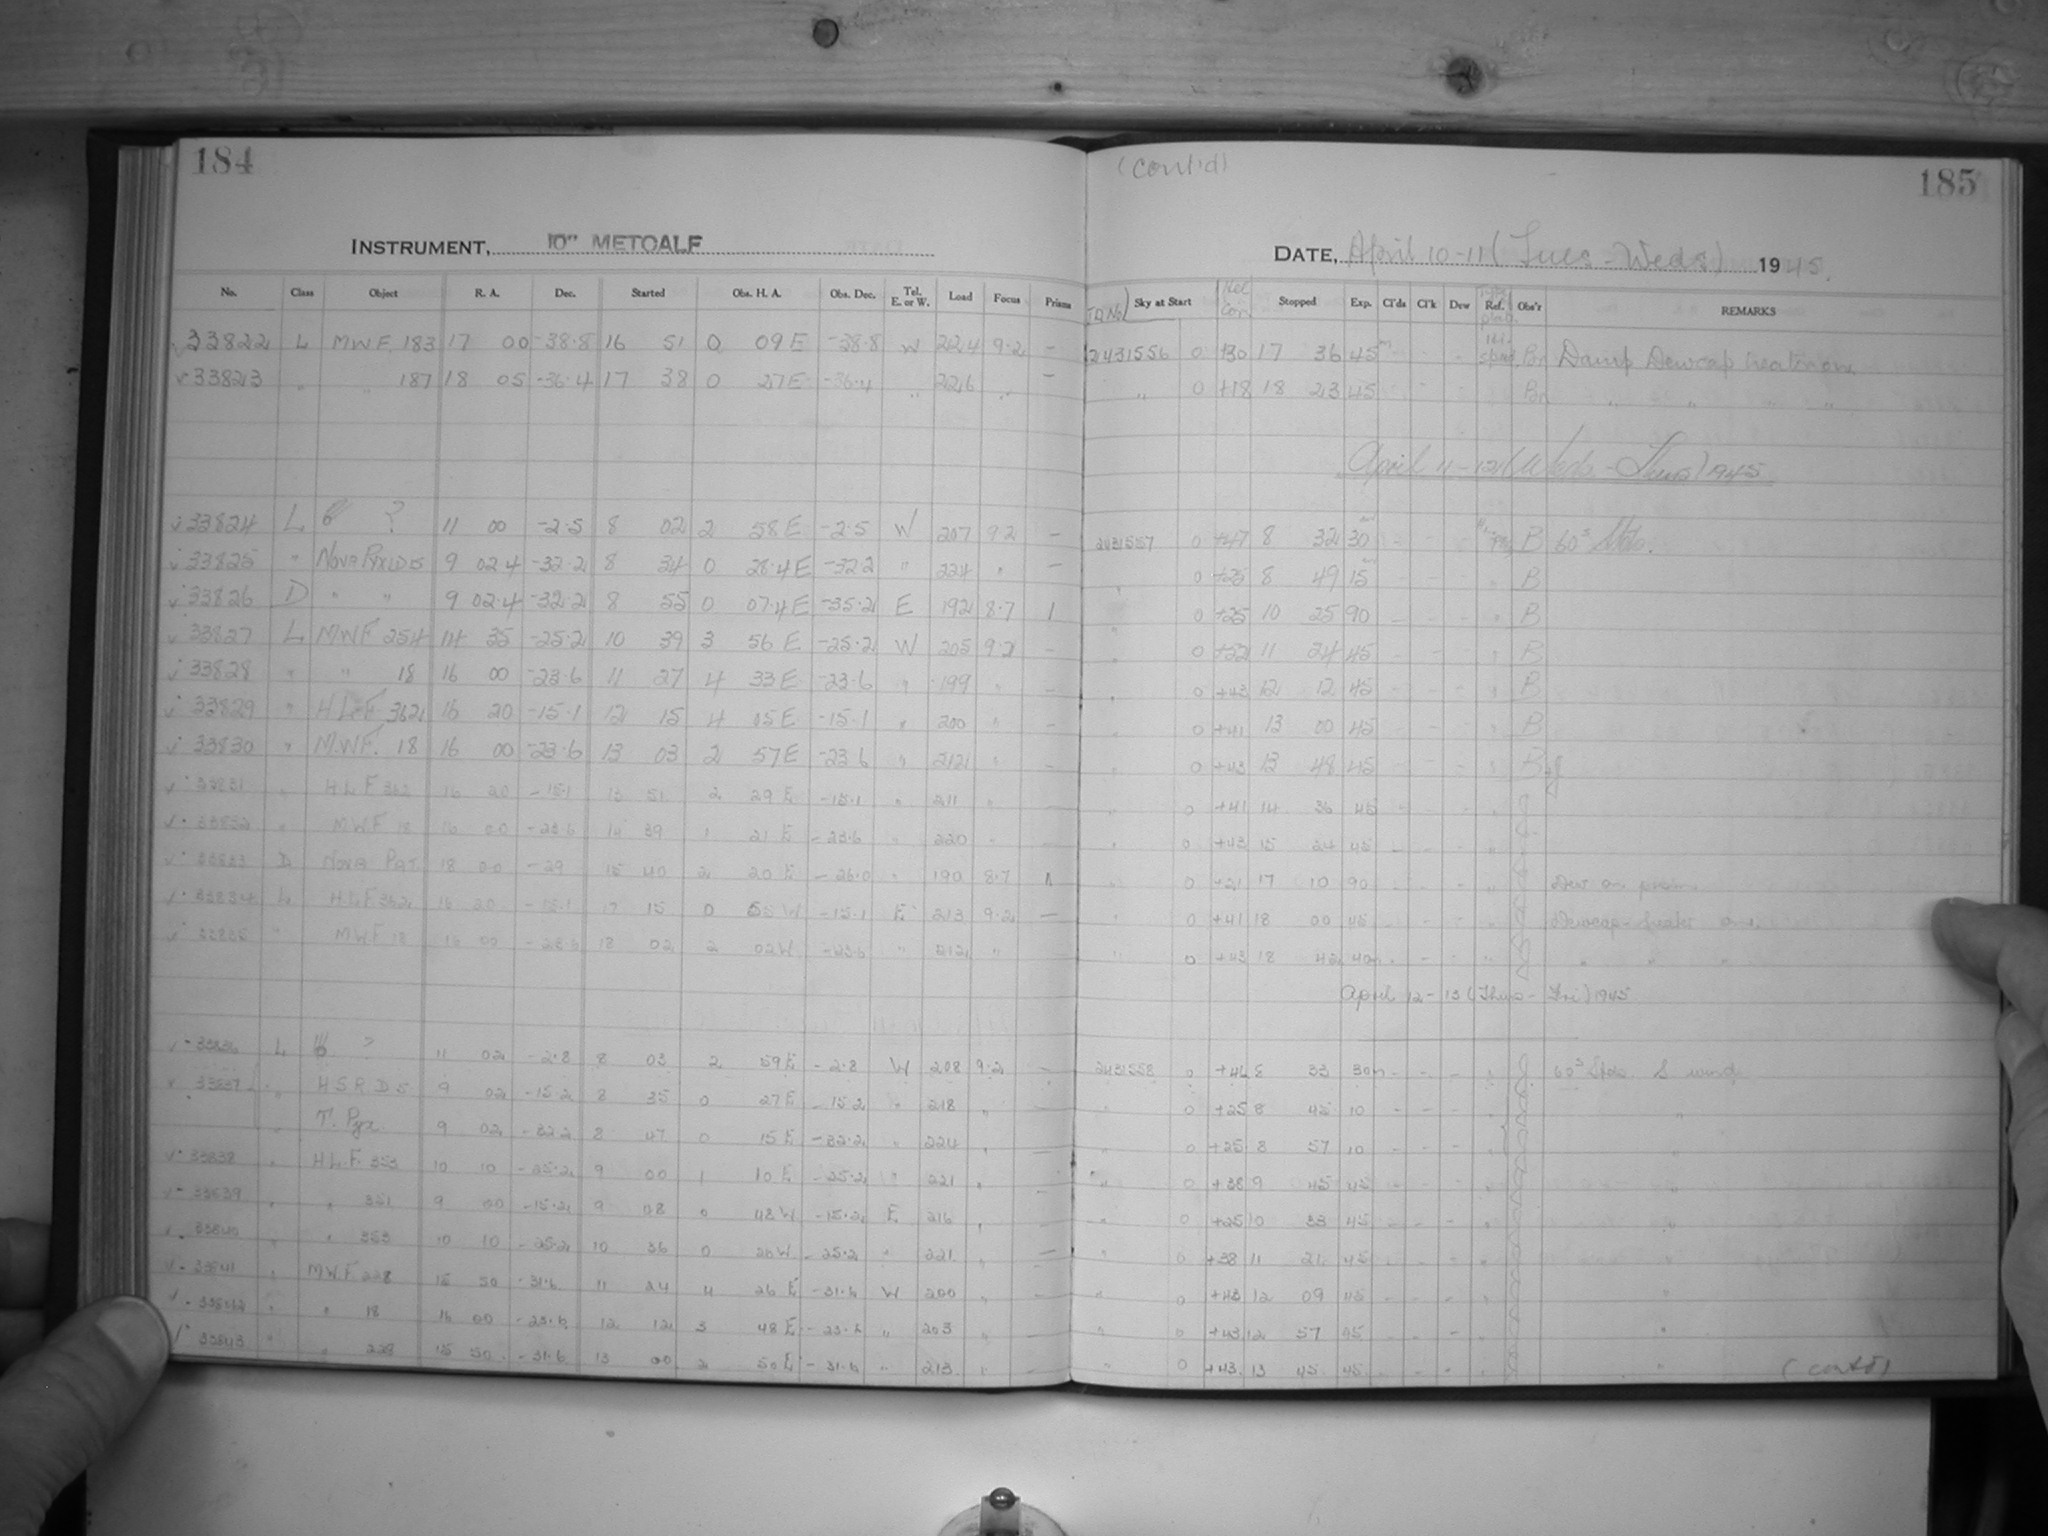 184
(cont'd)
185
INSTRUMENT, 10" METCALF
DATE, April 10-11 (Tues - Weds) 1945.
No. Class Object R. A. Dec. Started Obs. H. A. Obs. Dec. Tel. E. or W. Load Focus Prisms J.D. No. Sky at Start Rel. Con. Stopped Exp. Cl'ds Cl'k Dew Ref. Obs'r REMARKS
33822 L MWF. 183 17 00 -38.8 16 51 0 09 E -38.8 W 224 9.2 - 2431556 0 +30 17 36 45m - - - Bn Damp Dewcap heater on
33823 " " 187 18 05 -36.4 17 38 0 27 E -36.4 " 226 " - " 0 +18 18 23 45 - - - Bn " " " "
April 11-12 (Weds - Thurs) 1945
33824 L ? 11 00 -2.5 8 02 2 58 E -2.5 W 207 9.2 - 2431557 0 +47 8 32 30m - - - B 60s Stds.
33825 " NOVA PYXIDIS 9 02.4 -32.2 8 34 0 28.4 E -32.2 " 224 " - " 0 +25 8 49 15m - - - " B
33826 D " " 9 02.4 -32.2 8 55 0 07.4 E -35.2 E 192 8.7 1 " 0 +25 10 25 90 - - - " B
33827 L MWF 254 14 35 -25.2 10 39 3 56 E -25.2 W 205 9.2 - " 0 +52 11 24 45 - - - " B
33828 " " 18 16 00 -23.6 11 27 4 33 E -23.6 " 199 " - " 0 +43 12 12 45 - - - " B
33829 " HLF 362 16 20 -15.1 12 15 4 05 E -15.1 " 200 " - " 0 +41 13 00 45 - - - " B
33830 " M.W.F. 18 16 00 -23.6 13 03 2 57 E -23.6 " 212 " - " 0 +43 13 48 45 - - - " B+J
33831 " HLF 362 16 20 -15.1 13 51 2 29 E -15.1 " 211 " - " 0 +41 14 36 45 - - - " J
33832 " MWF 18 16 00 -23.6 14 39 1 21 E -23.6 " 220 " - " 0 +43 15 24 45 - - - " J
33833 D Nova 18 00 -29 15 40 2 20 E -26.0 " 190 8.7 1 " 0 +21 17 10 90 - - - " J Dew on prism
33834 L HLF 362 16 20 -15.1 17 15 0 55 W -15.1 E 213 9.2 - " 0 +41 18 00 45 - - - " J Dewcap-heater on.
33835 " MWF 18 16 00 -23.6 18 02 2 02 W -23.6 " 212 " " 0 +43 18 42 40m - - - " J " " "
April 12-13 (Thurs - Fri) 1945
33836 L ? 11 02 -2.8 8 03 2 59 E -2.8 W 208 9.2 - 2431558 0 8 33 30m - - - " J 60s Stds. S wind
33837 " H.S.R.D 5 9 02 -15.2 8 35 0 27 E -15.2 " 218 " - " 0 +25 8 45 10 - - - " J "
" T. Pyx. 9 02 -32.2 8 47 0 15 E -32.2 " 224 " - " 0 +25 8 57 10 - - - " J "
33838 " HLF. 353 10 10 -25.2 9 00 1 10 E -25.2 " 221 " - " 0 +38 9 45 45 - - - " J "
33839 " " 351 9 00 -15.2 9 48 0 48 W -15.2 E 216 " - " 0 +25 10 33 45 - - - " J "
33840 " " 353 10 10 -25.2 10 36 0 26 W -25.2 " 221 " - " 0 +38 11 21 45 - - - " J "
33841 " MWF 228 15 50 -31.6 11 24 4 26 E -31.6 W 200 " - " 0 +43 12 09 45 - - - " J "
33842 " " 18 16 00 -23.6 12 12 3 48 E -23.6 " 203 " - " 0 +43 12 57 45 - - - " J "
33843 " " 228 15 50 -31.6 13 00 2 50 E -31.6 " 213 " - " 0 +43 13 45 45 - - - " J "
(contd)